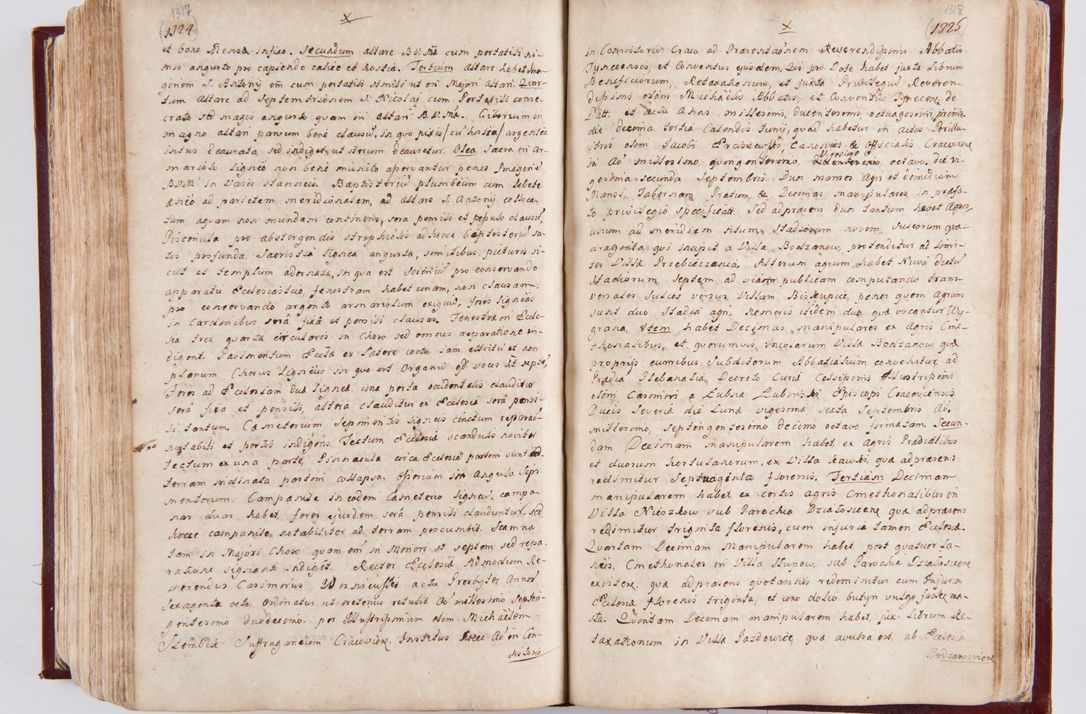 1317
(1324
X
et bene Mensa infixo. Secundum altare B.V.Mæ cum portatili ni-
mis angusto pro capiendo calice et hostia. Tertium altare habet Ima-
ginem S. Antonij cum portatili simili ut in Majori altari. Quar-
tum altare ad Septemtrionem S. Nicolaj cum Portatili conse-
crato sed magis angusto quam in altari B.V.Mæ. Ciborium in
magno altari parum bene clausum, in quo pixis cum hostia argentea
intus deaurata, sed indiget, ut iterum deauretur. Olea Sacra in Ar-
mariolo ligneo non bene munito asservantur penes Imaginem
B.V.M. in Vasis stanneis. Baptisterium plumbeum cum Lebete
æneo ad parietem meridionalem, ad altare S. Antonij colloca-
tum, aquam non mundam continens, sera pensili et pessulo clausum,
Piscinula pro abstergendis strophiolis adhæce baptisterium sa-
tis profunda. Sacristia lignea angusta, similibus picturis si-
cut et templum adornata, in qua est Scrinium pro conservando
apparatu Ecclesiastico, fenestram habet unam, non clausam,
pro conservando argento armariolum exiguum, fores ligneas
in Cardinibus sera fixa et pensili clausas. Fenestræ in Eccle-
sia tres, quarta circularis in Choro sed omnes reparatione in-
digent. Pavimentum Ecclesiæ ex Latere cocto jam attritum et non
planum. Chorus Ligneus in quo est Organum octo vocis ut septem.
Fores ad Ecclesiam duæ ligneæ, una porta occidentalis clauditur
sera fixa et pensili, altera clauditur ex Ecclesia sera pensi-
li tantum. Cæmeterium sepimentis ligneis cinctum repara-
notabili et portis indigens. Tectum Ecclesiæ scandulis noviter
tectum ex una parte, Pinnacula circa Ecclesiam partim sunt ad
terram inclinata partim collapsa. Operum in angulo sepi-
mentorum. Campanile in eodem Cæmeterio ligneum, campa-
nas duas habet, fores ejusdem sera pensili clauduntur, sed
hocce campanile notabiliter ad terram procumbit. Scamna
tam in Majori Choro quam in Minori et septem sed repa-
ratione lignorum indiget. Rector Ecclesiæ Admodum Re-
verendus Casimirus Winnicussei actu Presbyter Annorum
Sexaginta octo, ordinatus ut prætenus retulit Anno millesimo Septin-
gentesimo duodecimo, per Illustrissimum olim Michaëlem
Szembek Suffraganeum Cracoviensem Institutus hocce Anno in Con-
sistorio
1318
X
(1325)
in Consistorio Craco. ad Præsentationem Reverendissimi Abbatis
Tynecensis, et Conventus ejusdem, Qui pro Dote habet juxta Librum
Beneficiorum Retaxationum, et juxta Privilegium Reveren-
dissimi olim Michaëlis Abbatis, et Conventûs Tynecens. de
Datt. et actu Anno, millesimo, ducentesimo, octuagesimo, primo,
die decima tertia Calendis Junij, quod habetur in actis Perillu-
stris olim Jacobi Erciszewski, Canonici & Officialis Cracoviensis
in Anno millesimo, quingentesimo, Vigesimo octavo, die vi-
gesima secunda Septembris. Duos mansos Agri et dimidium
Mansi, Tabernam, Pratum, & Decimas manipulares in præfa-
to privilegio specificatt. Sed ad præsens Duos tantum habet Agros,
unum ad meridiem situm, Stadiorum novem, sulcorum qua-
draginta, qui incipit a Villa Bodzanow, protenditur ad limi-
tes Villæ Przebieczana. Alterum agrum habet Nuva dictum
Stadiorum Septem ad viam publicam computando trans-
versales sulcos versus Villam Biskupice, penes quem Agrum
sunt duo stadia agri, Nemoris itidem duo, quæ vocantur Wy-
grana. Item habet Decimas manipulares ex Agris Cme-
thonalibus, et quorumvis, Incolarum Villæ Bodzanow, quæ
proprijs curribus Subditorum Abbatialium convehitur ad
Prædia Plebanalia, Decreto Curiæ Celsissimi Illustrissimi
olim Casimiri a Lubna Lubinski Episcopi Cracoviensis
Ducis Severiæ die Lunæ vigesima sexta Septembris Anno
millesimo, septingentesimo decimo octavo firmatam. Secun-
dam Decimam manipularem habet ex Agris Prædialibus
et duorum hortulanorum, ex Villa Sławki, quæ ad præsens
redimitur Septuaginta florenis. Tertiam Decimam
manipularem habet ex certis agris Cmethonalibus in
Villa Nieszkow sub Parochia Działoszyce quæ ad præsens
redimitur triginta florenis, cum injuria tamen Ecclesiæ.
Quartam Decimam manipularem habet post quatuor La-
neis, Cmethonales in Villa Słupow, sub Parochia Działoszyce
existens, quæ ad præsens quotannis redimitur cum Injuria
Ecclesiæ florenis triginta, et uno dolio butyri vulgo faskę ma-
sła. Quintam Decimam manipularem habet, jux. Librum Re-
taxationum in Villa Jazdowice quæ avulsa est, ab Ecclesia
Bodzanoviens.